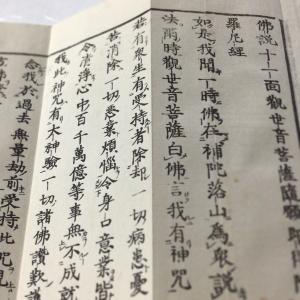 佛説十一面觀世音菩薩隨願即得
羅尼經
如是我聞一時佛在補陀落山爲衆説
法爾時觀世音菩薩白佛言我有神咒
若有衆生有受持者除却一切病悪憂
苦消除一切悪業煩惱令身口意業皆
令清淨心中百千萬億等事無不成就
我此神咒有大神驗一切諸佛讃歎
念我於過去無量劫前受持此咒